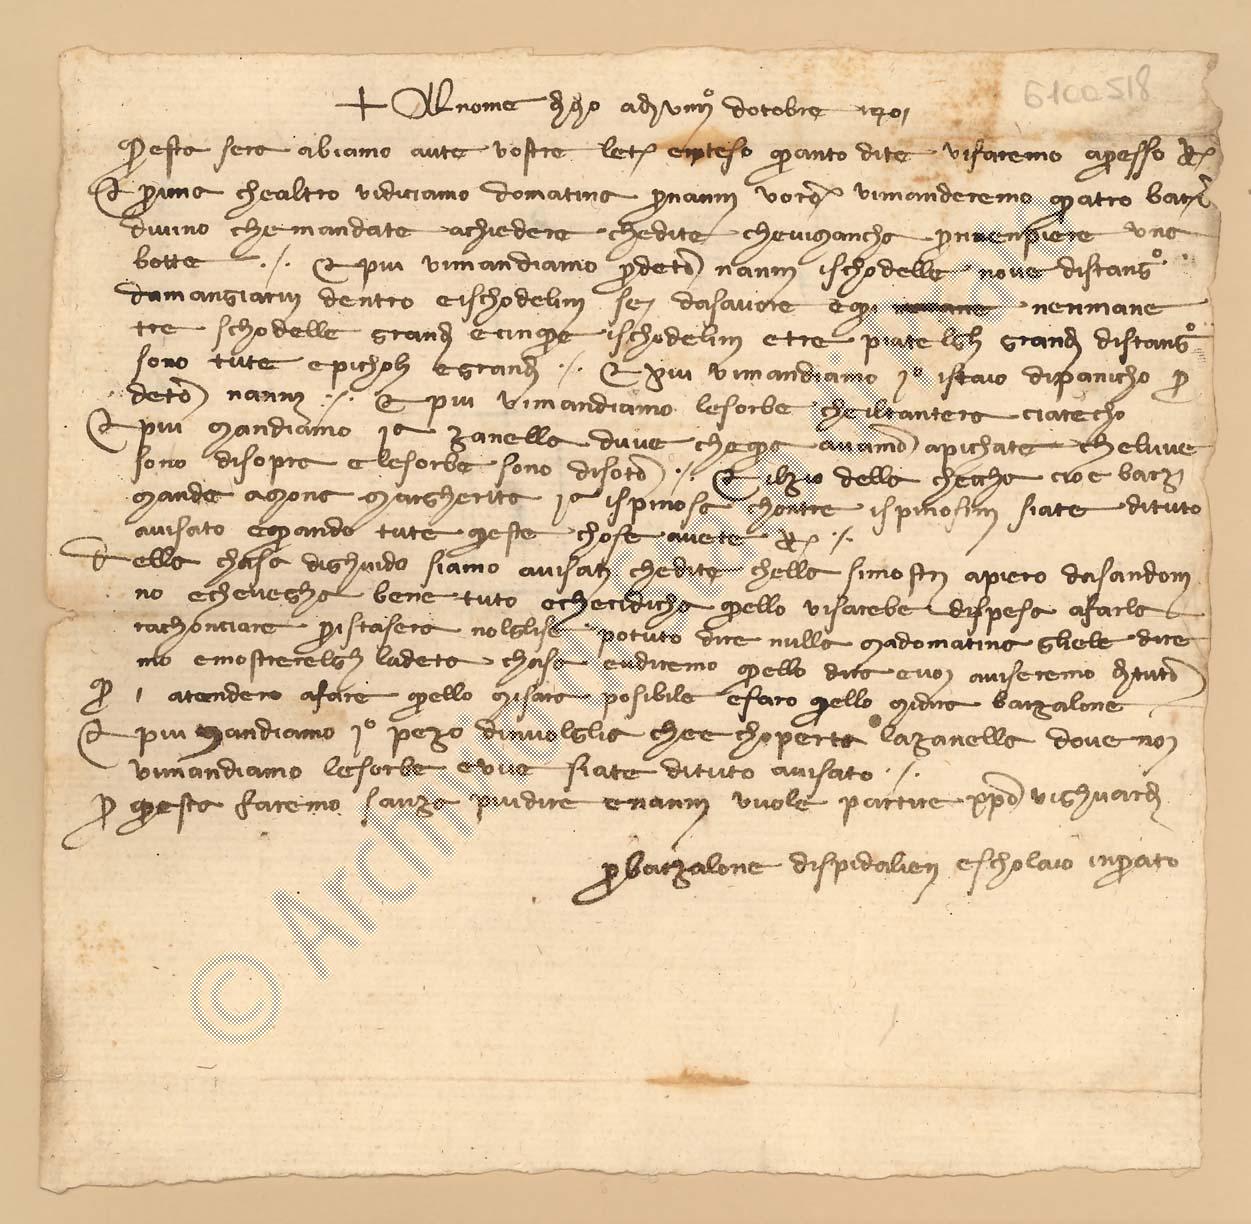 6100518
+ Al nome di dio adi viiiiº dotobre 1401
Questa sera abiamo aute vostre letr e inteso quanto dite vi faremo apresso
E prima che altro vi diciamo domatina per nanni vi manderemo quatro bar
di vino che mandate a chiedere che dite chevi mancha per rienpiere una
botte ./. E piu vi mandiamo per deto nanni ischodelle nove distangº
da mangiarvi dentro e ischodelini sei da savore e qui nenmane
tre schodelle grandi e cinque ischodelini e tre piatelgli grandi distangº
sono tute e picholi e grandi ./. E piu vi mandiamo jº istaio di panicho per
deto nanni ./. E piu vi mandiamo le sorbe
E piu mandiamo jª zanella d uve che qua avamo apichate che l uve
sono di sopra e le sorbe sono di soto ./. E il zio della checha cioe barz
manda a mona margherita jª ispinosa chontre ispinosini siate di tuto
avisato e quando tute queste chose avete ./.
Della chasa di ghuido siamo avisati che dite chella si mostri a piero da san doni
no e che vegha bene tuto e che ci dicha quello vi sarebe di spesa a farla
rachonciare per istasera nolglise potuto dire nulla madomatina gliele dire
mo e mostrerelgli la deta chasa e udiremo quello dira e voi aviseremo di tuto
atendero a fare quello mi sara posibile e faro quello mi dira barzalone
E piu mandiamo jº pezo d involglia che e choperta la zanella dove noi
vi mandiamo le sorbe e uve siate di tuto avisato ./.
per questa faremo sanza piu dire e nanni vuole partire vi ghuardi
per barzalone di spidalieri e scholaio in prato
© Archivio di Stato di Prato